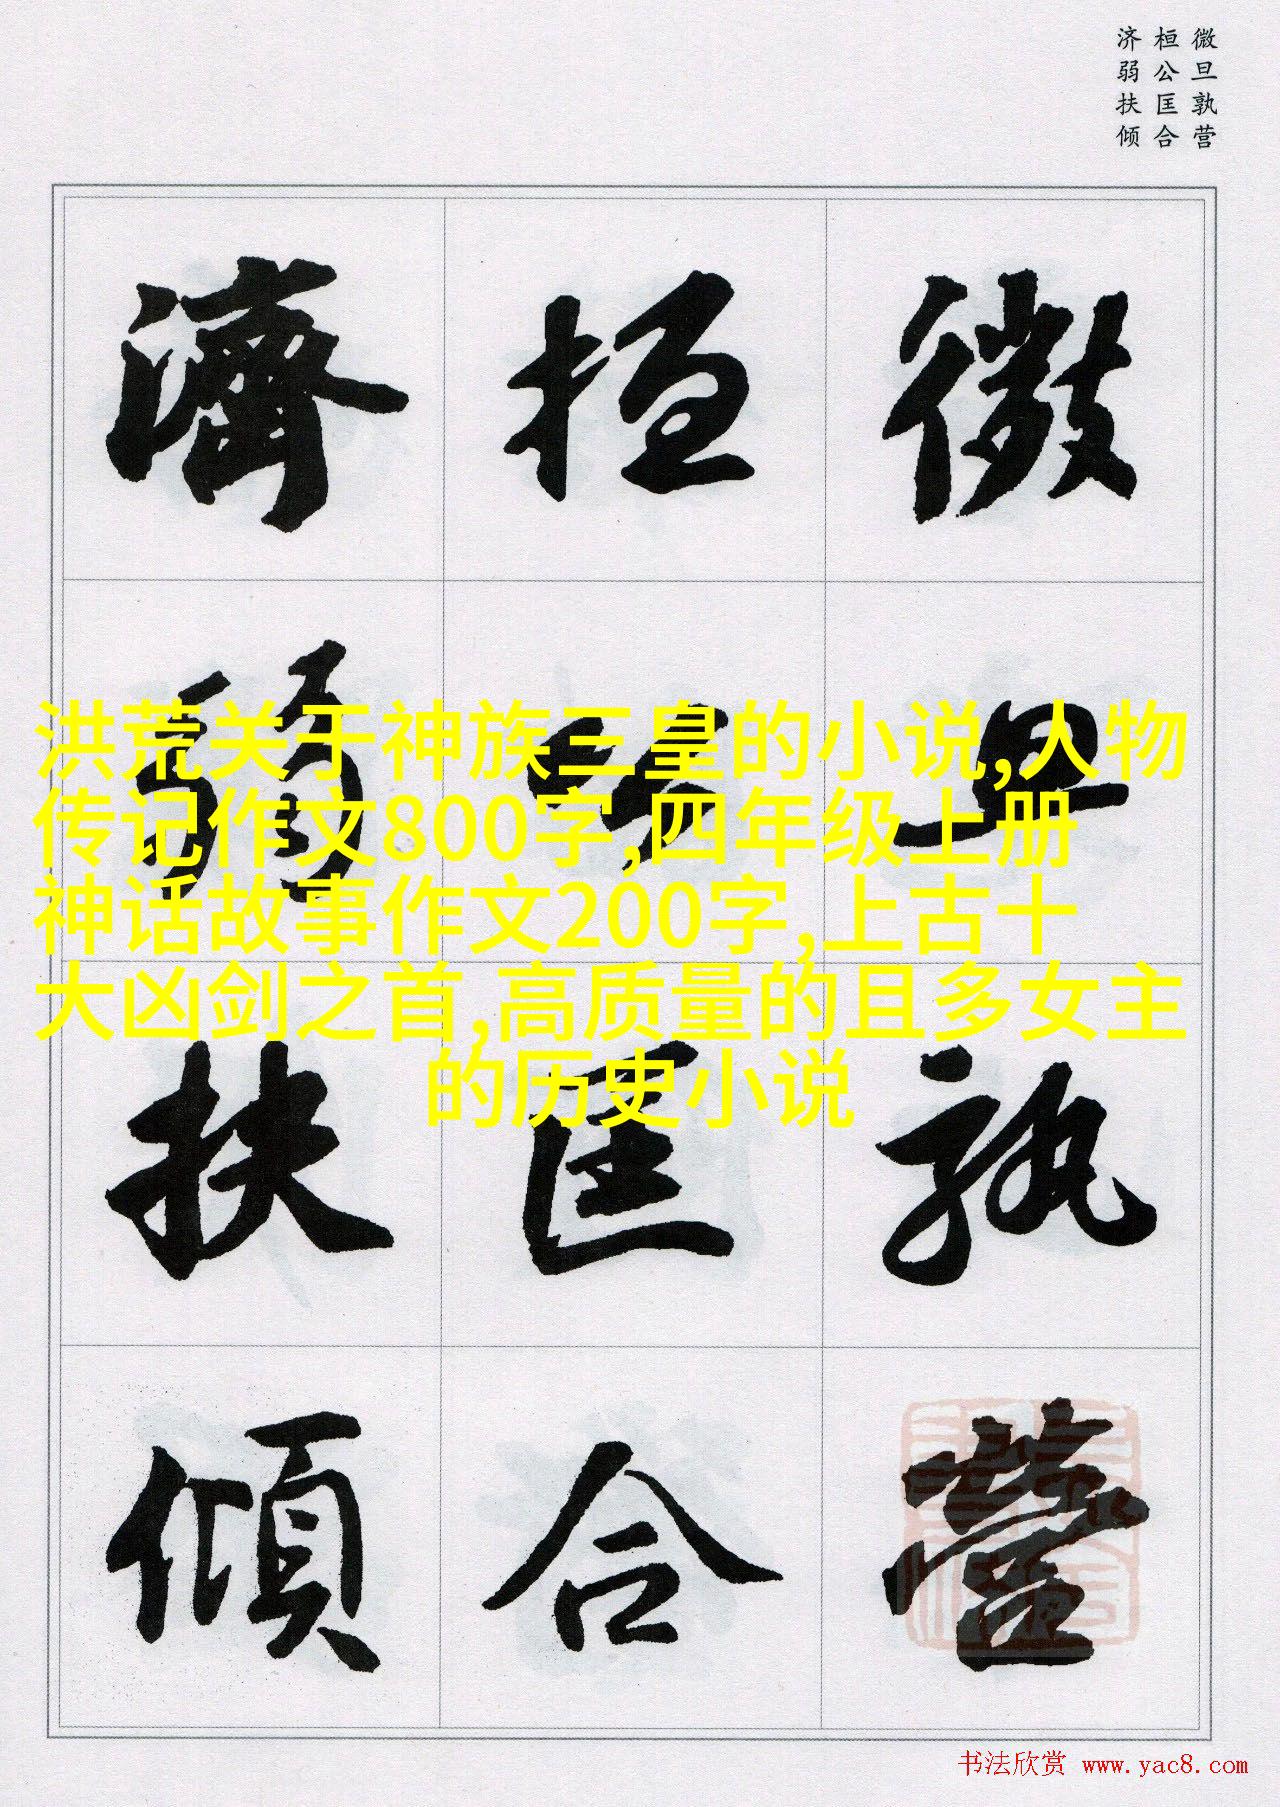 微旦孰营
桓公匡合
济弱扶倾
微旦孰營
桓公匡合
濟弱扶傾
洪荒关于神族三皇的小说,人物
传记作文800字,四年级上册
神话故事作文200字,上古十
大凶剑之首,高质量的且多女主
的历史小说
书法欣赏 www.yac8.com